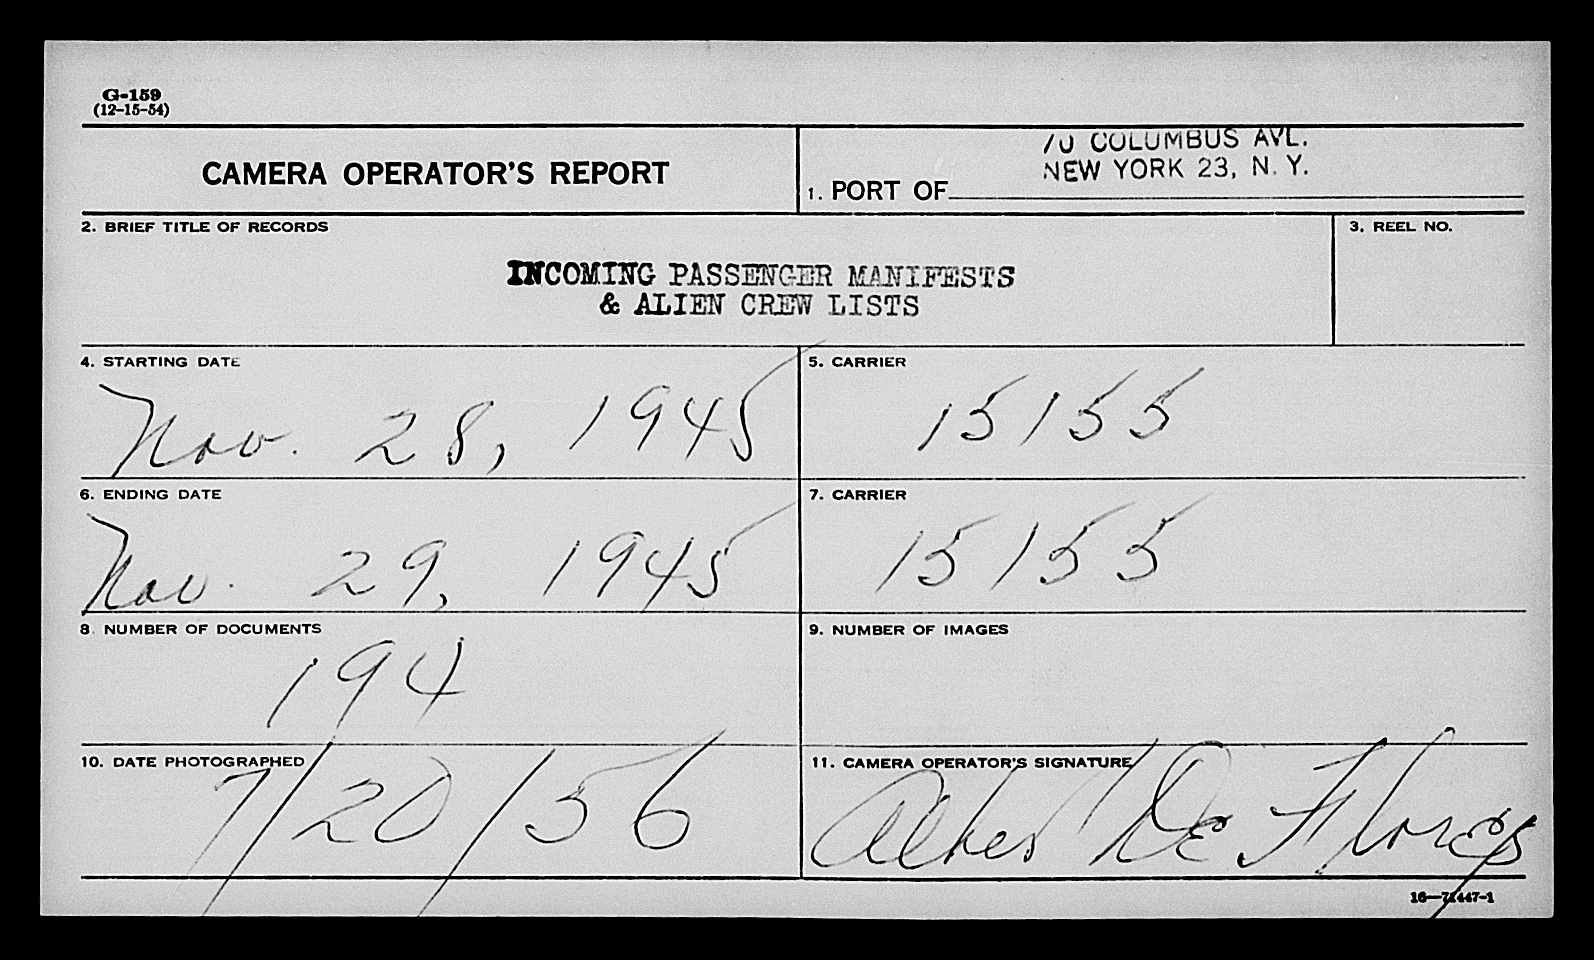 G-159
(12-15-54)
CAMERA OPERATOR'S REPORT
70 COLUMBUS AVE.
NEW YORK 23, N. Y.
1. PORT OF
2. BRIEF TITLE OF RECORDS
3. REEL NO.
INCOMING PASSENGER MANIFESTS
& ALIEN CREW LISTS
4. STARTING DATE
Nov. 28, 1945
5. CARRIER
15155
6. ENDING DATE
Nov. 29, 1945
7. CARRIER
15155
8. NUMBER OF DOCUMENTS
194
9. NUMBER OF IMAGES
10. DATE PHOTOGRAPHED
7/20/56
11. CAMERA OPERATOR'S SIGNATURE
De Flores
16—71447-1